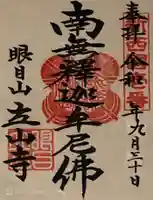 奉拝 令和 年九月三十日
南無釋迦牟尼佛
眼目山 立山寺